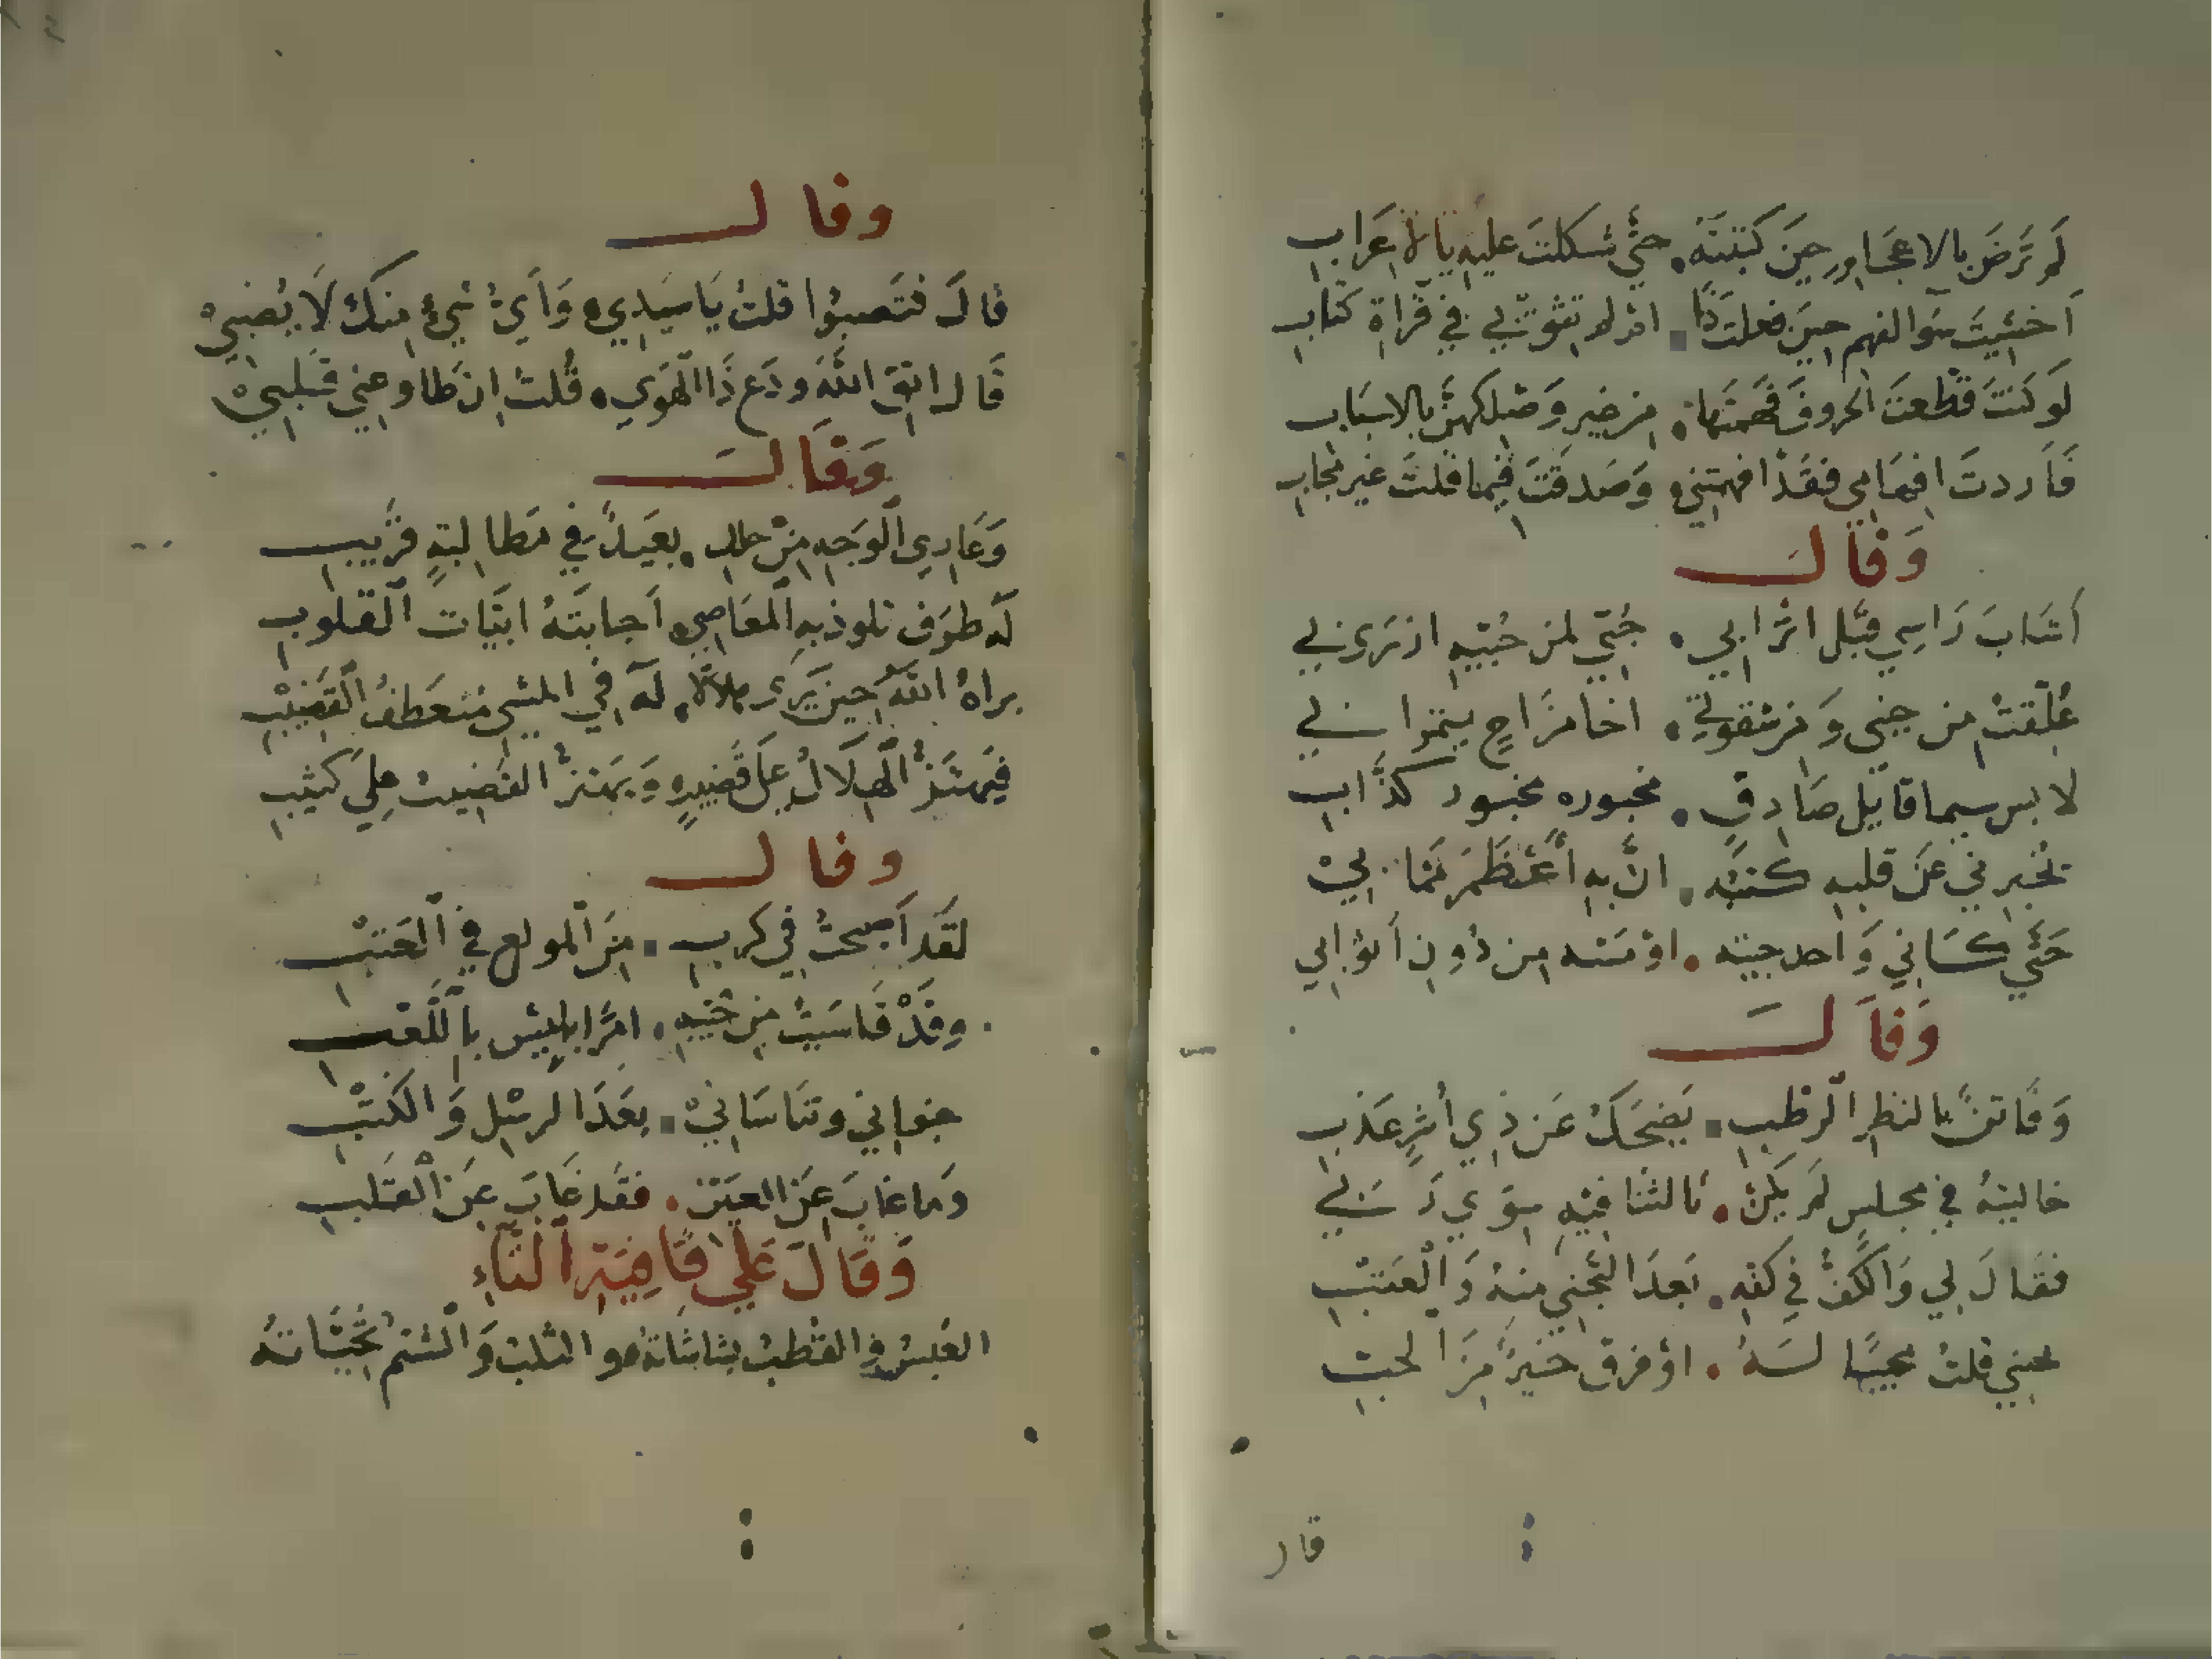 لَم تَرضَ بالاعجَامِ حِينَ كَتَبتَهُ. حتَّي شكلتَ عليهِ بالاعرَابِ
اَخشيتَ سَوالفهم حينَ فعلتَ ذَا. ام لم تثق بي في قراةِ كتاب
لَو كنتَ قطَّعتَ الحروفَ فَهمتُها. من غيرِ وَصلِكهنَّ بالاسبَاب
فَاَردتَ افهَامي فقَد افهمتني وَصَدقتَ فيما قلتَ غير مُحاب
وَقالَ
اَشابَ رَاسي قبَل اترابي. حُبّي لمن حُبّيهِ ازرى بي
عُلّقتُ من حيني وَمن شقوتي. اخا مزَاحٍ
لابس سيما قايَل صَادقٍ. كذَّاب
تخبرني عَن قلبهِ كتبه. انَّ بهِ اَعظَمَ ممَّا بي
حَتَّي كسَاني وَاحد جبته. من دُونِ اَثوابي
وَقالَ
وَفَاتنٍ بالنظرِ الرطبِ. يَضحَكُ عَن ذِي اُشرٍ عَذبِ
خاليتهُ في مجلسٍ لَم يكن. ثالثنا فيهِ سِوَي رَبّي
فقَالَ لِي وَالكفُّ في كفهِ. بَعدَ التجني منهُ وَالعَتبِ
تحبني قلتُ مجيبًا لَهُ. اوفرق خيرٌ منَ الحبّ
قال
وقال
قَالَ فتَصبُوا قلتُ يَا سَيِدي وَايّ شيءٍ منكَ لَا يُصبيْ
قَال اتق اللهَ ودَع ذَا الهَوَي. قُلتُ ان طاوعني قَلبيْ
وَقالَ
وَعَارِي الوَجهِ من حللٍ. بعَيدٌ في مَطالبتهِ قرَيب
لَه طرَف تلوذ بهِ المعَاصي اَجابَتهُ ابيَّات القلوب
براهُ اللهُ حينَ يَرى هلالًا. لَهُ في المشي مُنعَطَفُ القَضيبِ
فيَهتَزُّ الهلَالُ عَلَي قَضيبٍ وَيَهتزُّ القضيبُ عِليَ كثيب
وقال
لقَد اَصبحتُ في كربٍ. مِنَ المولع في العَتبْ
وقَدْ قَاسَيتُ من حُبّيهِ. امرًا لَيسَ باللعب
جفاني وتنَاسَاني. بعَدَ الرسْل وَالكتبْ
وَمَا غابَ عَن العَينِ. فقَد غابَ عَن القَلب
وَقَالَ عَلي قَافيَة التَّاء
العُبسُ والقطبُ بشاشاتهُ والثلبُ وَالشتم تحيَّاتهُ